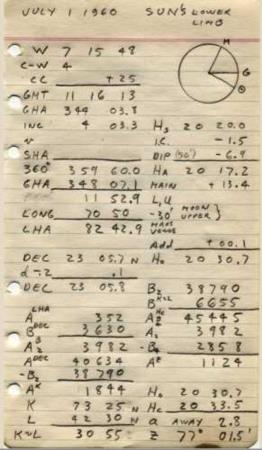 JULY 1 1960 SUN'S LOWER LIMB
W 7 15 48
C-W 4
CC + 25
GMT 11 16 13
GHA 344 03.8
INC 4 03.3
v
SHA
360° 359 60.0
GHA 348 07.1
11 52.9
LONG 70 50
LHA 82 42.9
DEC 23 05.7 N
d -.2 .1
DEC 23 05.8
M
G
Hs 20 20.0
I.C. - 1.5
DIP (50') - 6.9
HA 20 17.2
MAIN + 13.4
L,U
-30' MOON UPPER
MARS VENUS
Add + 00.1
Ho 20 30.7
LHA
A 352
B DEC 3630
A 3982
A DEC 40634
-B 38790
A K 1844
K 73 25 N
L 42 30 N
K~L 30 55
B 38790
B K~L 6655
A Hc 45445
A 3982
-B 2858
A Z 1124
Ho 20 30.7
Hc 20 33.5
a AWAY 2.8
Z 77° 01.5'